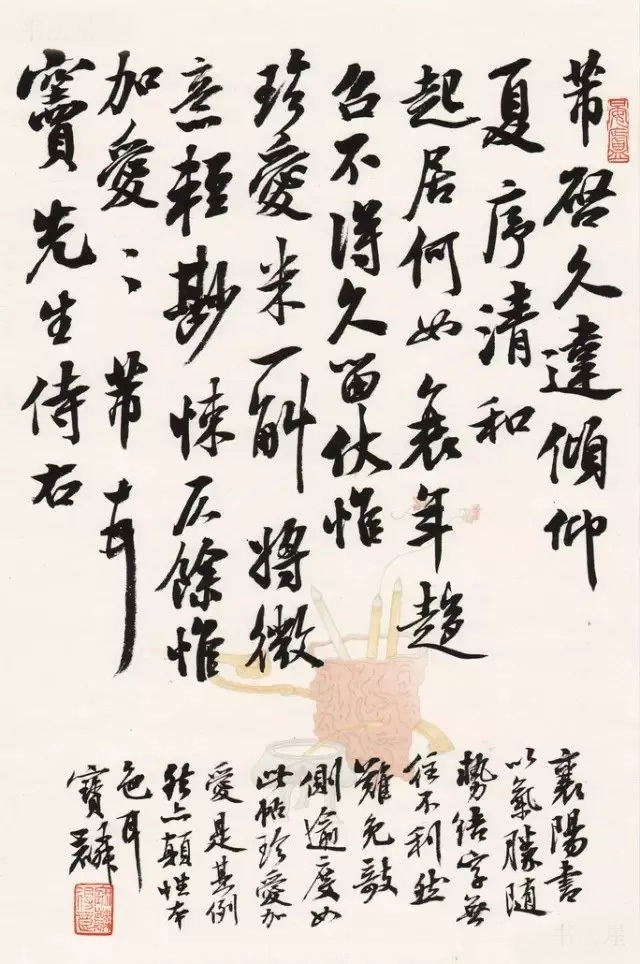 芾啓久違傾仰
夏序清和
起居何如衰年趨
召不得久留伏惟
珍愛米一斛將微
意輕尠悚仄餘惟
加愛〻芾頓首
竇先生侍右
襄陽書
以氣勝隨
勢結字無
往不利然
難免欹
側逾度如
此帖珍愛加
愛是其例
然亦顛性本
色耳
寶麟